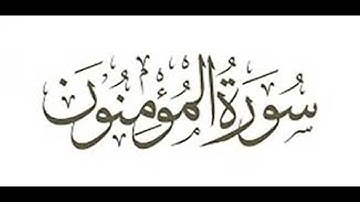 سُورَةُ الْمُؤْمِنُونَ